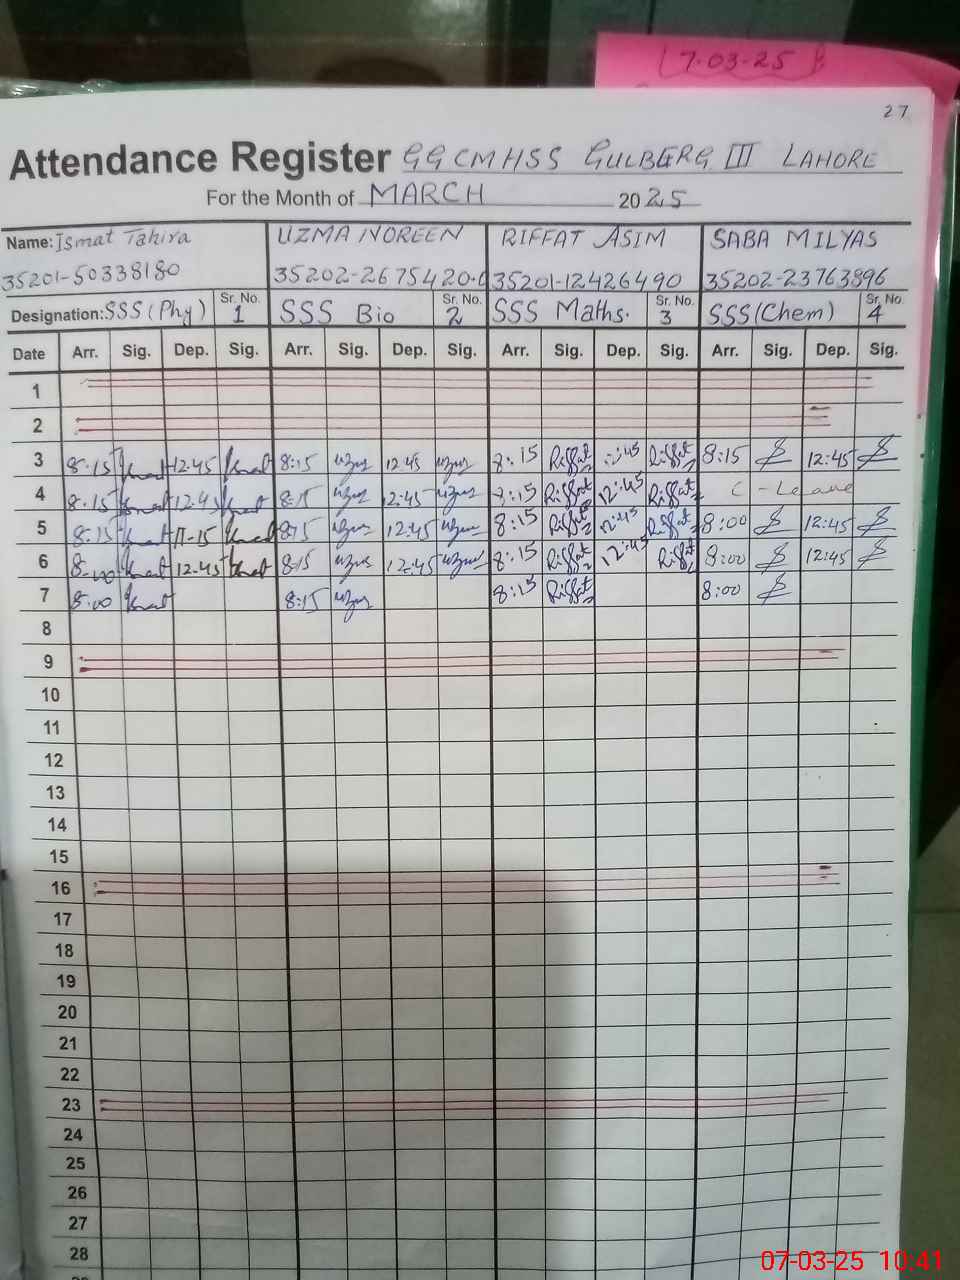 7-03-25
27
Attendance Register GGCMHSS GULBERG III LAHORE
For the Month of MARCH 2025
Name: Ismat Tahira UZMA NOREEN RIFFAT ASIM SABA MILYAS
35201-50338180 35202-2675420-6 35201-12426490 35202-23763896
Designation: SSS (Phy) Sr. No. 1 SSS Bio Sr. No. 2 SSS Maths. Sr. No. 3 SSS (Chem) Sr. No. 4
Date Arr. Sig. Dep. Sig. Arr. Sig. Dep. Sig. Arr. Sig. Dep. Sig. Arr. Sig. Dep. Sig.
1
2
3 8:15 Ismat 12:45 Ismat 8:15 uzma 12:45 uzma 8:15 Riffat 12:45 Riffat 8:15 12:45
4 8:15 Ismat 12:45 Ismat 8:15 uzma 12:45 uzma 8:15 Riffat 12:45 Riffat C-Leave
5 8:15 Ismat 11-15 Ismat 8:15 uzma 12:45 uzma 8:15 Riffat 12:45 Riffat 8:00 12:45
6 8:00 Ismat 12:45 Ismat 8:15 uzma 12:45 uzma 8:15 Riffat 12:45 Riffat 8:00 12:45
7 8:00 Ismat 8:15 uzma 8:15 Riffat 8:00
8
9
10
11
12
13
14
15
16
17
18
19
20
21
22
23
24
25
26
27
28
07-03-25 10:41